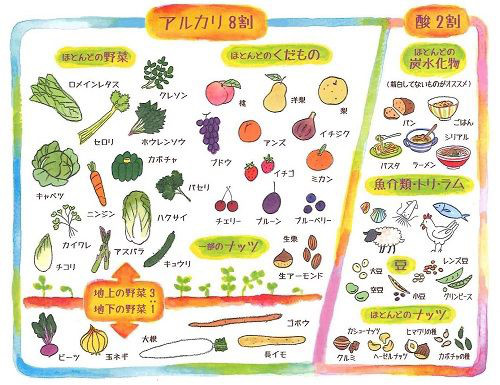 アルカリ8割
ほとんどの野菜
ロメインレタス
クレソン
セロリ
ホウレンソウ
カボチャ
キャベツ
ニンジン
パセリ
ハクサイ
カイワレ
アスパラ
チコリ
キュウリ
ほとんどのくだもの
桃
洋梨
梨
ブドウ
アンズ
イチジク
イチゴ
ミカン
チェリー
プルーン
ブルーベリー
一部のナッツ
生栗
生アーモンド
地上の野菜3
地下の野菜1
ビーツ
玉ネギ
大根
ゴボウ
長イモ
酸2割
ほとんどの
炭水化物
(精白してないものがオススメ)
パン
ごはん
パスタ
ラーメン
シリアル
魚介類・トリ・ラム
豆
大豆
レンズ豆
空豆
小豆
グリンピース
ほとんどのナッツ
カシューナッツ
ヒマワリの種
クルミ
ヘーゼルナッツ
カボチャの種